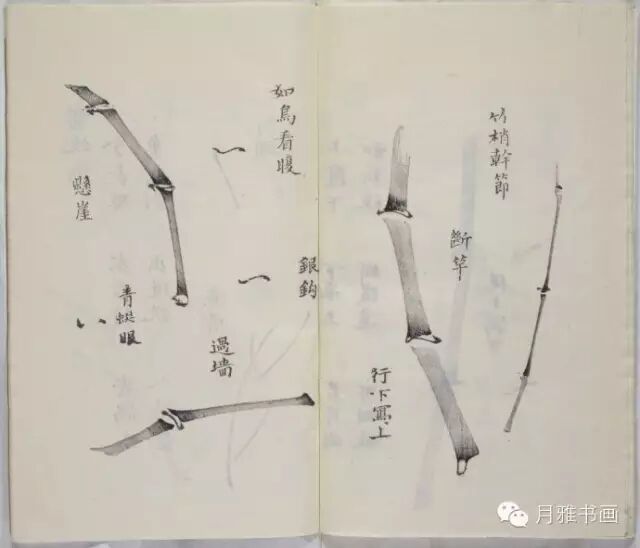 竹梢幹節
斷竿
行下寫上
如鳥看腹
銀鈎
過墙
青蜓眼
懸崖
月雅书画